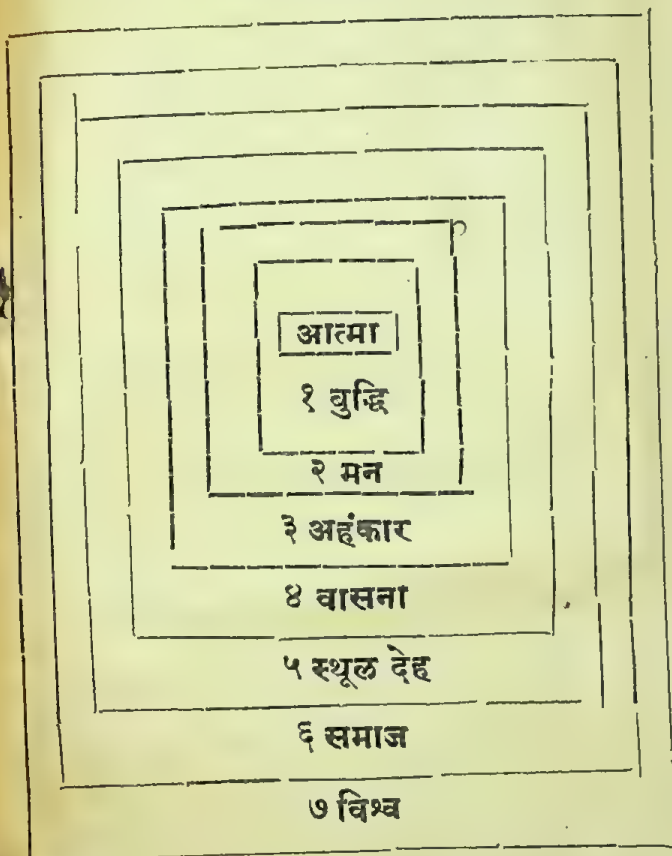 आत्मा
१ बुद्धि
२ मन
३ अहंकार
४ वासना
५ स्थूल देह
६ समाज
७ विश्व